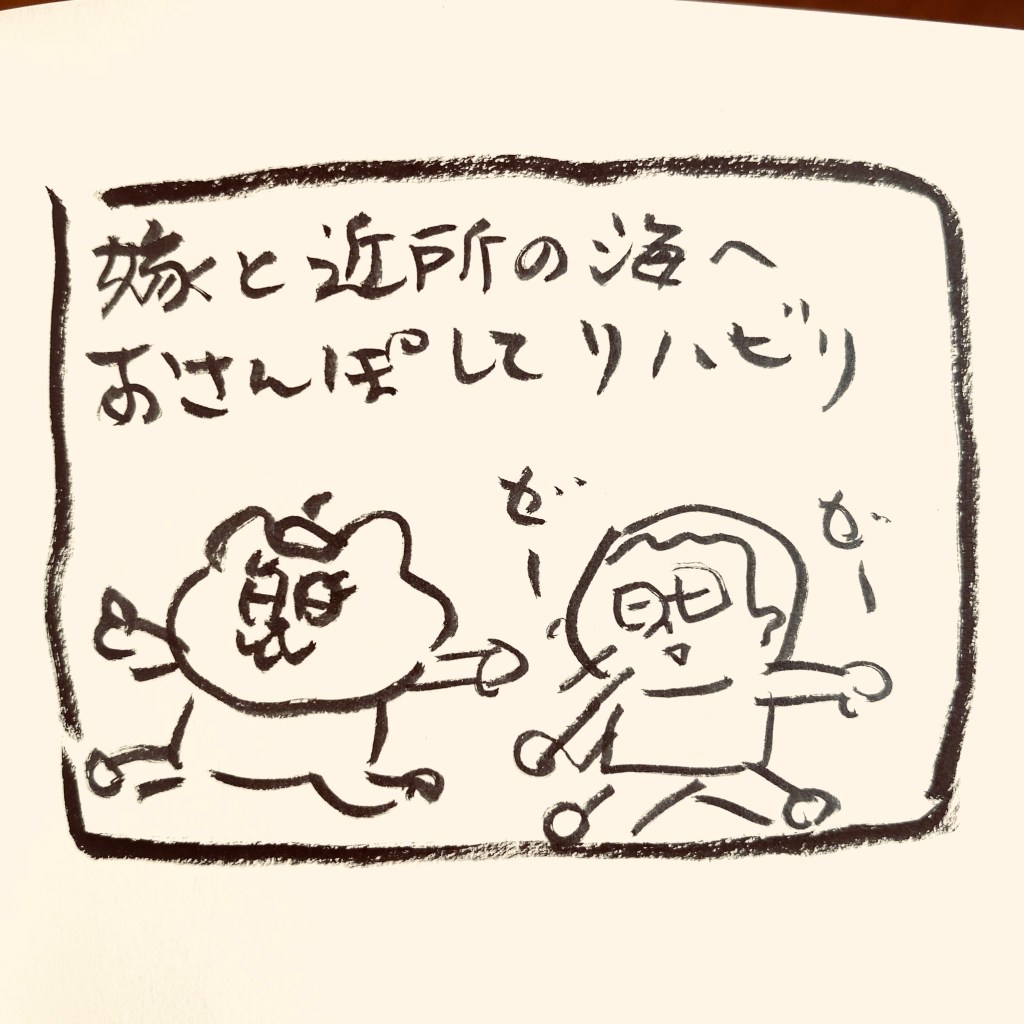 嫁と近所の海へ
おさんぽしてリハビリ
ぜー
ぜー